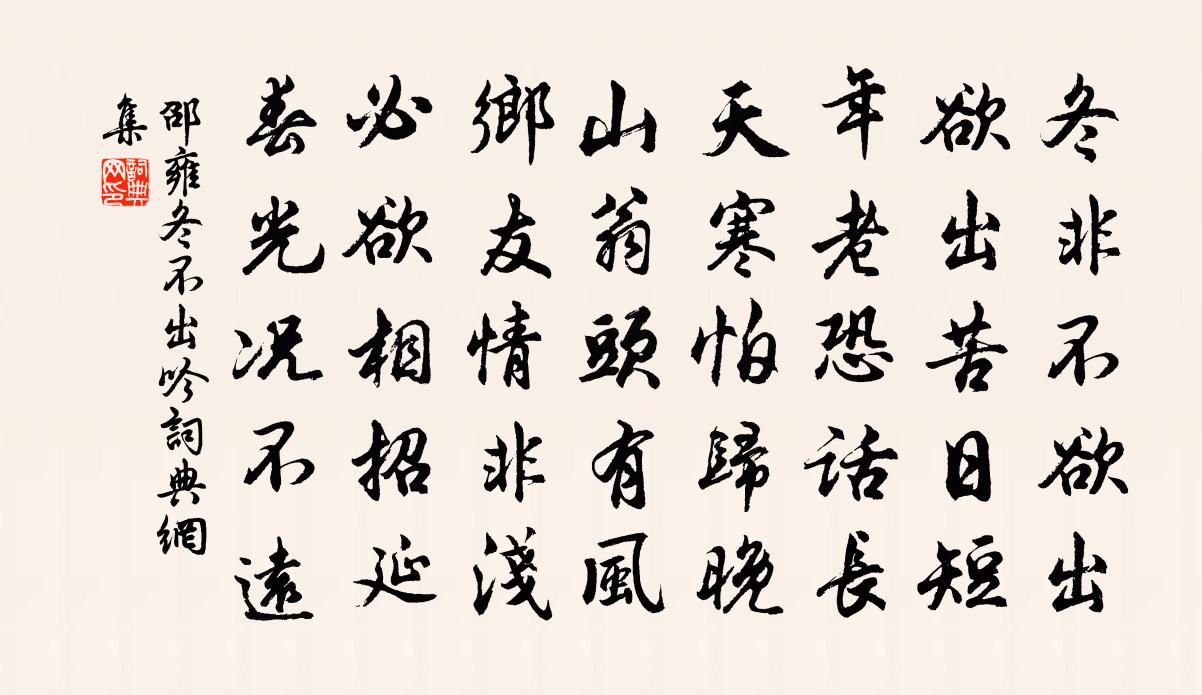 冬非不欲出
欲出苦日短
年老恐話長
天寒怕歸晚
山翁頭有風
鄉友情非淺
必欲相招延
春光況不遠
邵雍冬不出吟詞典網
集
詞典網印